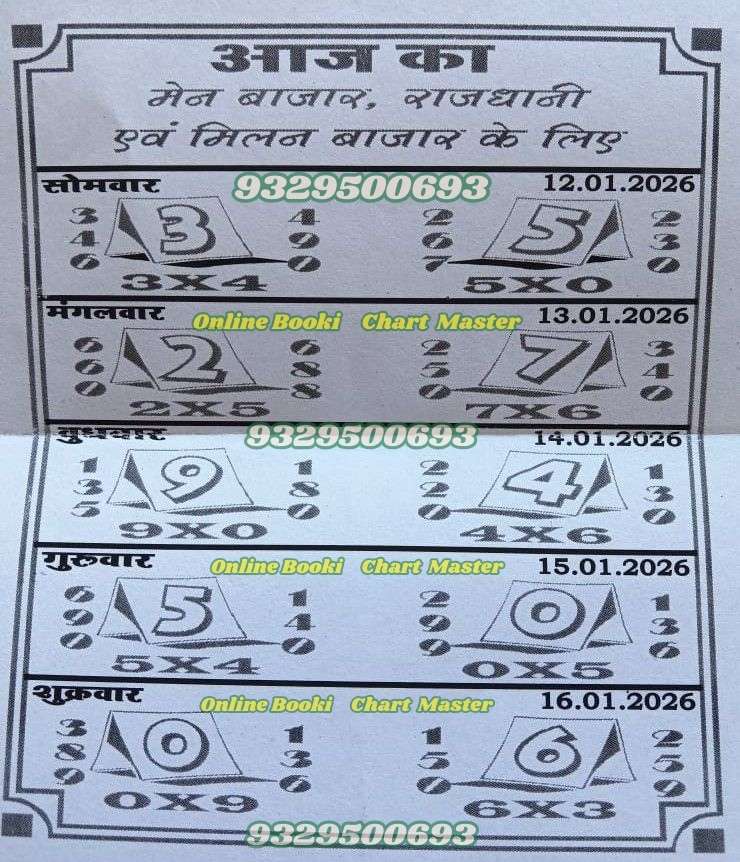 आज का
मेन बाजार, राजधानी
एवं मिलन बाजार के लिए
सोमवार 9329500693 12.01.2026
3 3 4 2 5 2
4 9 6 3
6 0 7 0
3X4 5X0
मंगलवार Online Booki Chart Master 13.01.2026
6 2 6 2 7 3
6 8 5 4
0 8 0 0
2X5 7X6
बुधवार 9329500693 14.01.2026
1 9 1 2 4 1
3 8 2 3
5 0 0 0
9X0 4X6
गुरुवार Online Booki Chart Master 15.01.2026
6 5 1 2 0 1
9 4 9 3
0 0 9 6
5X4 0X5
शुक्रवार Online Booki Chart Master 16.01.2026
3 0 1 1 6 2
8 3 5 5
9 6 0 9
0X9 6X3
9329500693